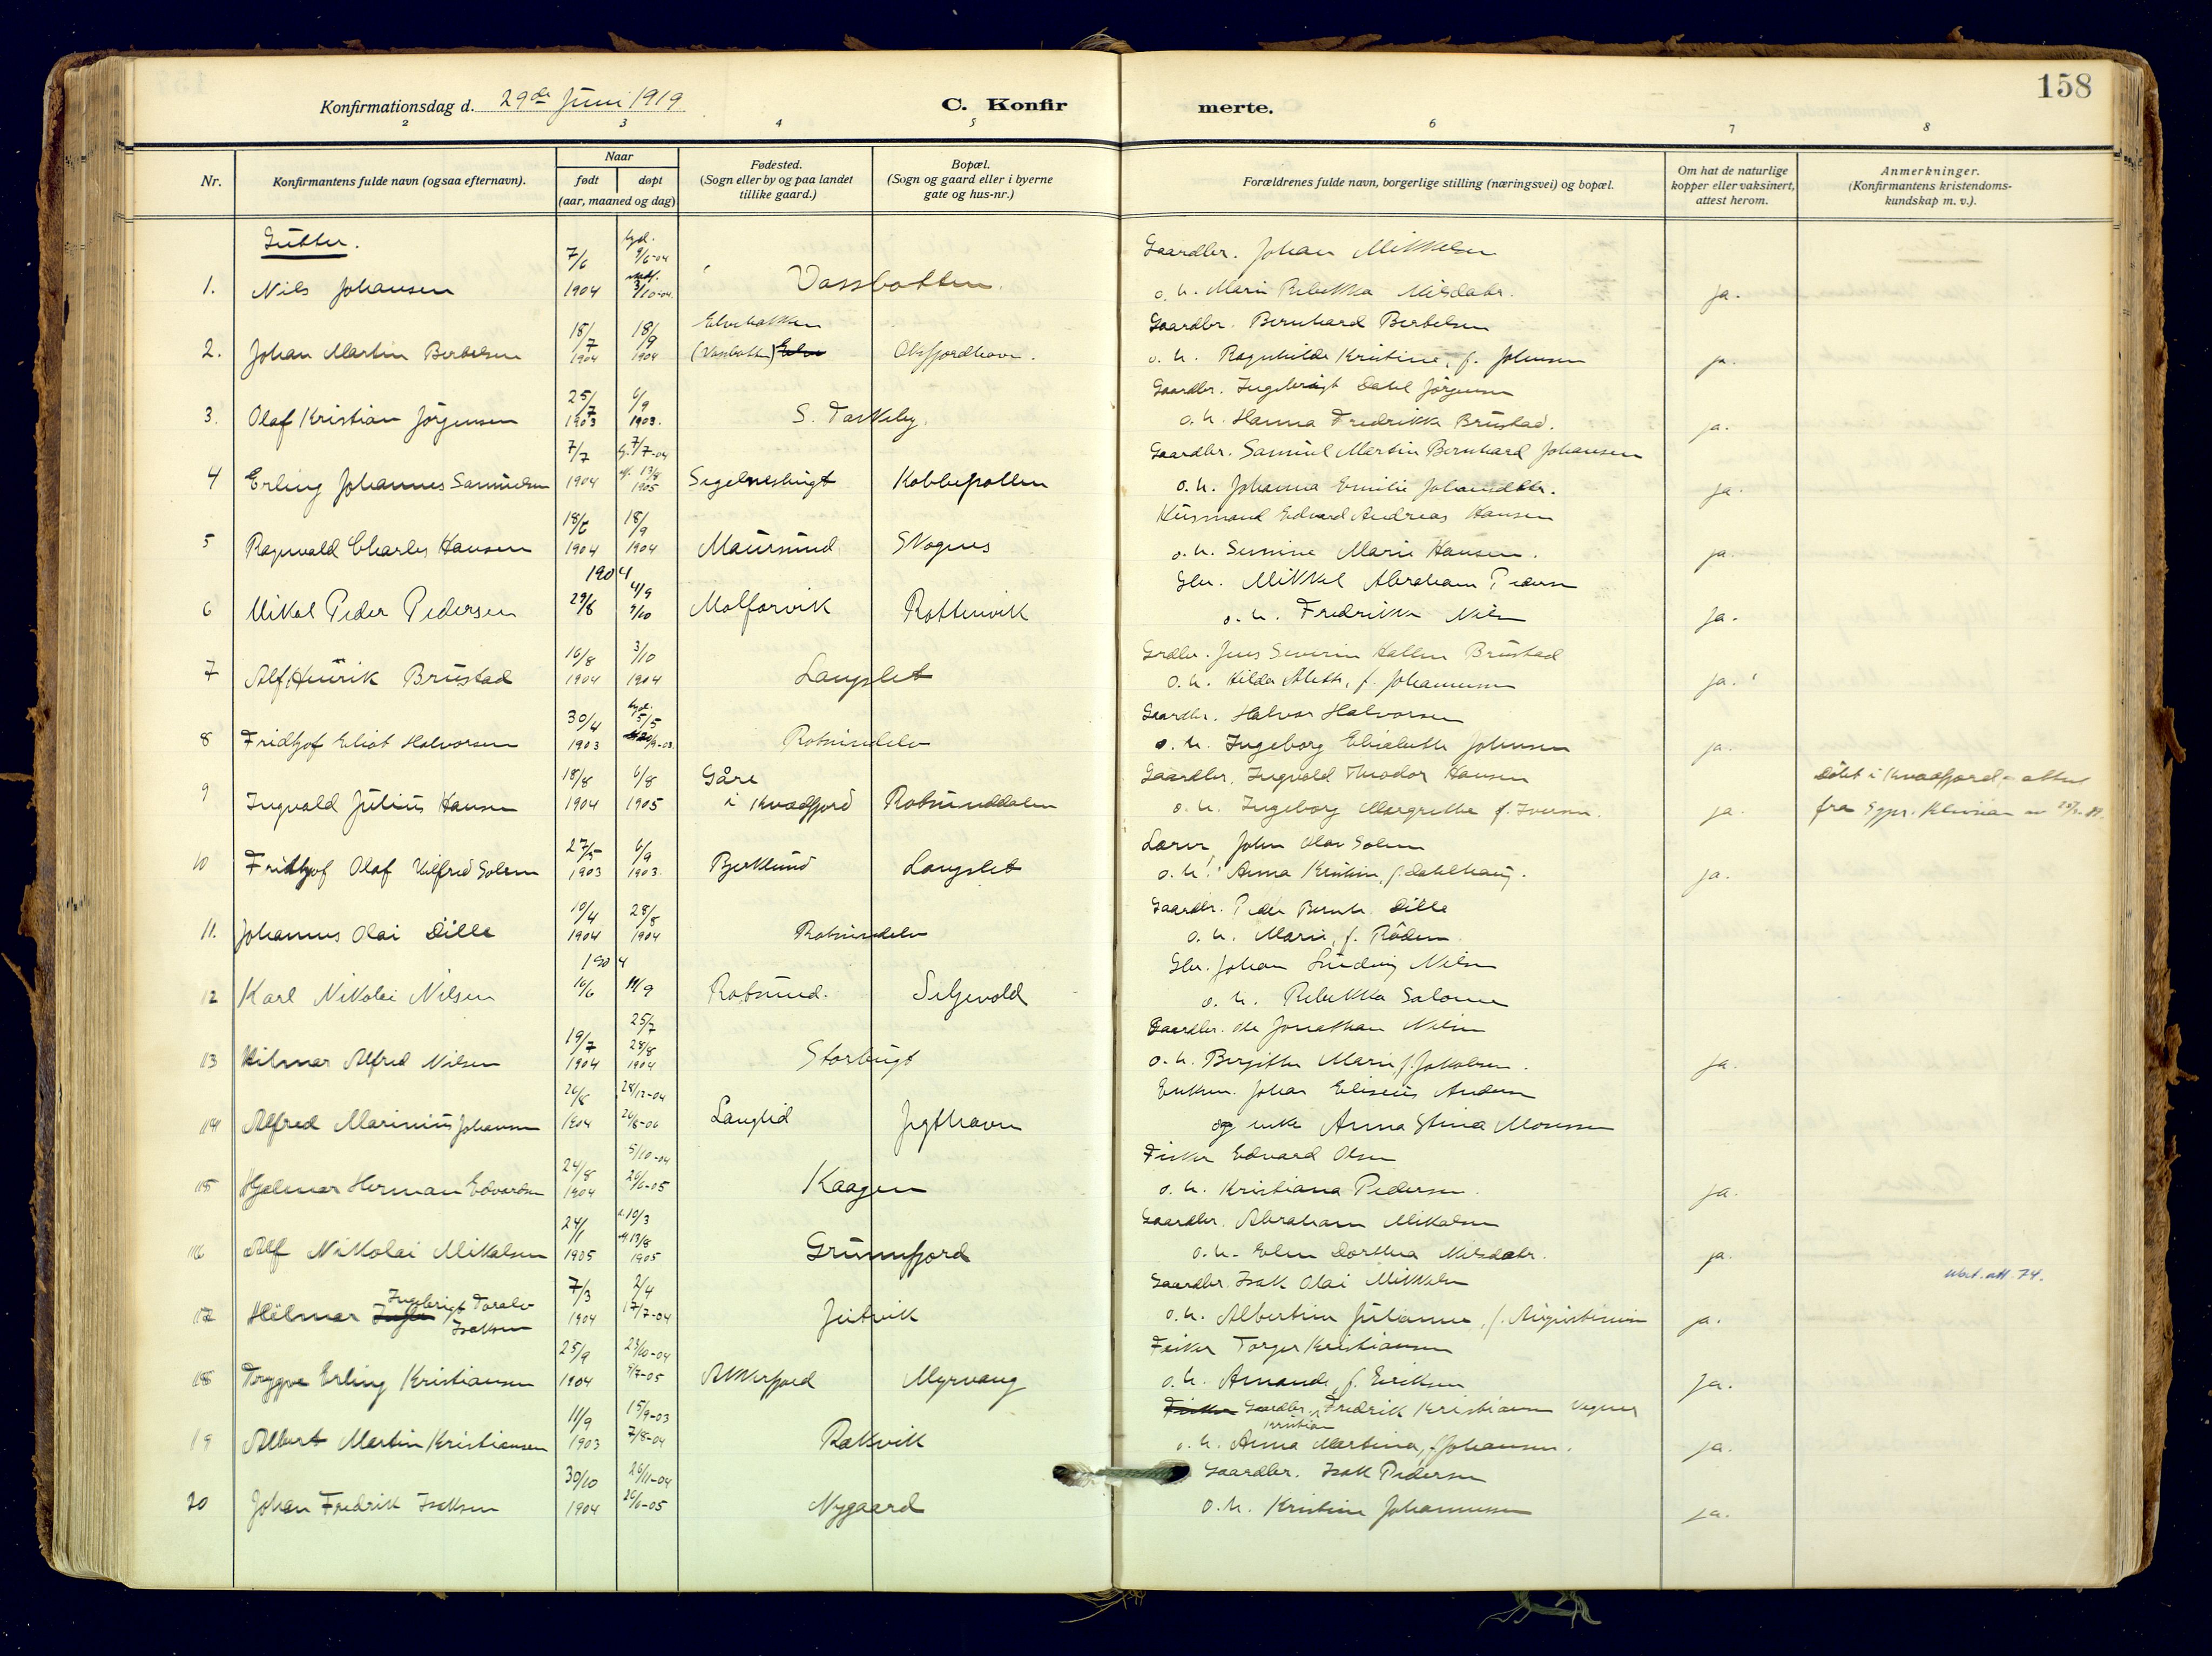 158
Konfirmationsdag d. 29de Juni 1919
C. Konfir merte.
2 3 4 5 6 7 8
Nr. Konfirmantens fulde navn (ogsaa efternavn). Naar født døpt (aar, maaned og dag) Fødested. (Sogn eller by og paa landet tillike gaard.) Bopæl. (Sogn og gaard eller i byerne gate og hus-nr.) Forældrenes fulde navn, borgerlige stilling (næringsvei) og bopæl. Om hat de naturlige kopper eller vaksinert, attest herom. Anmerkninger. (Konfirmantens kristendoms-kundskap m. v.).
Gutter.
7/6 9/6-04 Gaardbr. Johan Mikkelsen
1. Nils Johansen 1904 Vassbotten. o. h. Marie Rebekka Nilsdatr. ja.
15/7 18/9 Elvebakken Gaardbr. Bernhard Bertelsen
2. Johan Martin Bertelsen 1904 1904 (Vassbotten) o. h. Ragnhilde Kristine, f. Johnsen ja.
25/7 6/9 Gaardbr. Ingebrigt Dahl Jörgensen
3. Olaf Kristian Jörgensen 1903 1903. S. Taskeby. o. h. Hanna Fredrikke Brustad. ja.
7/7 7/7-04 Gaardbr. Samuel Martin Bernhard Johansen
4 Erling Johannes Samuelsen 1904 13/8 1905 Segelnesbugt Kobbepollen o. h. Johanna Emilie Johansdatr. ja.
18/6 18/9 Husmand Edvard Andreas Hansen
5 Ragnvald Charles Hansen 1904 1904 Maursund Skognes o. h. Marie Hansen. ja.
1904 4/9 Gbr. Mikkel Abraham Pedersen
6 Mikal Peder Pedersen 29/8 9/10 Molforvik Rottenvik o. h. Fredrikke Nilsen ja.
16/8 3/10 Grdbr. Jens Severin Hallen Brustad
7 Alf Henrik Brustad 1904 1904 Langslet o. h. Hilda Aleth, f. Johannessen ja.
30/4 5/5 Gaardbr. Halvor Halvorsen
8 Fridtjof Eliot Halvorsen 1903 Rotsundelv o. h. Ingeborg Elisabeth Johnsen ja.
18/8 6/8 Gåre Gaardbr. Ingvald Theodor Hansen Döbt i Kvædfjord attest
9 Ingvald Julius Hansen 1904 1905 i Kvædfjord Rotsunddalen o. h. Ingeborg Margrethe f. Iversen. ja fra
27/5 6/9 Lærer John Olav Solem
10 Fridtjof Olaf Vilfred Solem 1903 1903. Bjerklund Langslet o. h. Anna Kristine, f. Dahlhaug. ja.
10/4 28/8 Gaardbr. Peder Bernh. Dille
11. Johannes Olai Dille 1904 1904 Rotsundelv o. h. Marie, f. Råden
1904 Gbr. Johan Ludvig Nilsen
12 Karl Nikolai Nilsen 16/6 11/9 Rotsund. Seljevold o. h. Rebekka Salomine
19/7 25/7 28/8 Gaardbr. Ole Jonathan Nilsen
13 Hilmar Alfred Nilsen 1904 1904 Storbugt o. h. Bergitte Marie, f. Jakobsen. ja.
26/8 28/12-04 Enkem. Johan Eliseus Andersen
14 Alfred Marinius Johansen 1904 26/8-06 Langlid Jegthavn og enke Anna Stina Monssen
24/8 5/10-04 Fisker Edvard Olsen
15 Hjalmar Herman Edvardsen 1904 26/6-05 Kaagen o. h. Kristiana Pedersen. ja.
24/1 10/3 Gaardbr. Abraham Mikalsen
16 Alf Nikolai Mikalsen 1905 13/8 1905 Grunnfjord o. h. Elen Dorthea Nilsdatr. ja.
7/3 2/4 Gaardbr. Isak Olai Mikkelsen att. 74.
17 Hilmar Ingebrigt Toralv Isaksen 1904 17/7-04 Jeitvik o. h. Albertine Julianne, f. Augustinusen ja.
25/9 23/10-04 Fisker Torger Kristiansen
18 Trygve Erling Kristiansen 1904 9/7-05 Akkerfjord Myrvang o. h. Amanda f. Eriksen ja.
11/9 15/9-03 Fisker Gaardbr. Fredrik Kristian Kristiansen
19 Albert Martin Kristiansen 1903 7/8-04 Rakvik o. h. Anna Martina, f. Johansen. ja.
30/10 26/11-04 Gaardbr. Isak Pedersen
20 Johan Fredrik Isaksen 1904 26/6-05 Nygaard o. h. Kristine Johannessen ja.